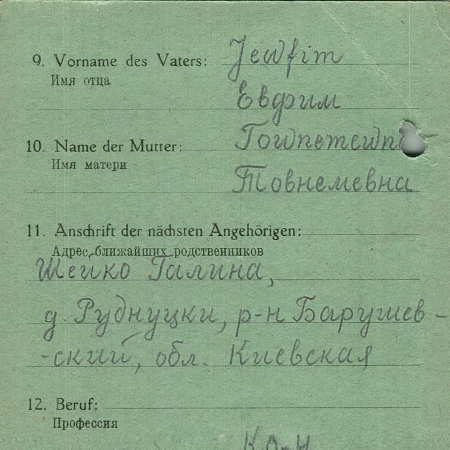 9. Vorname des Vaters: Jewfim
Имя отца
Евфим
10. Name der Mutter:
Имя матери
Товнемевна
11. Anschrift der nächsten Angehörigen:
Адрес ближайших родственников
Шейко Галина,
д. Руднуцки, р-н Барушев-
-ский, обл. Киевская
12. Beruf:
Профессия